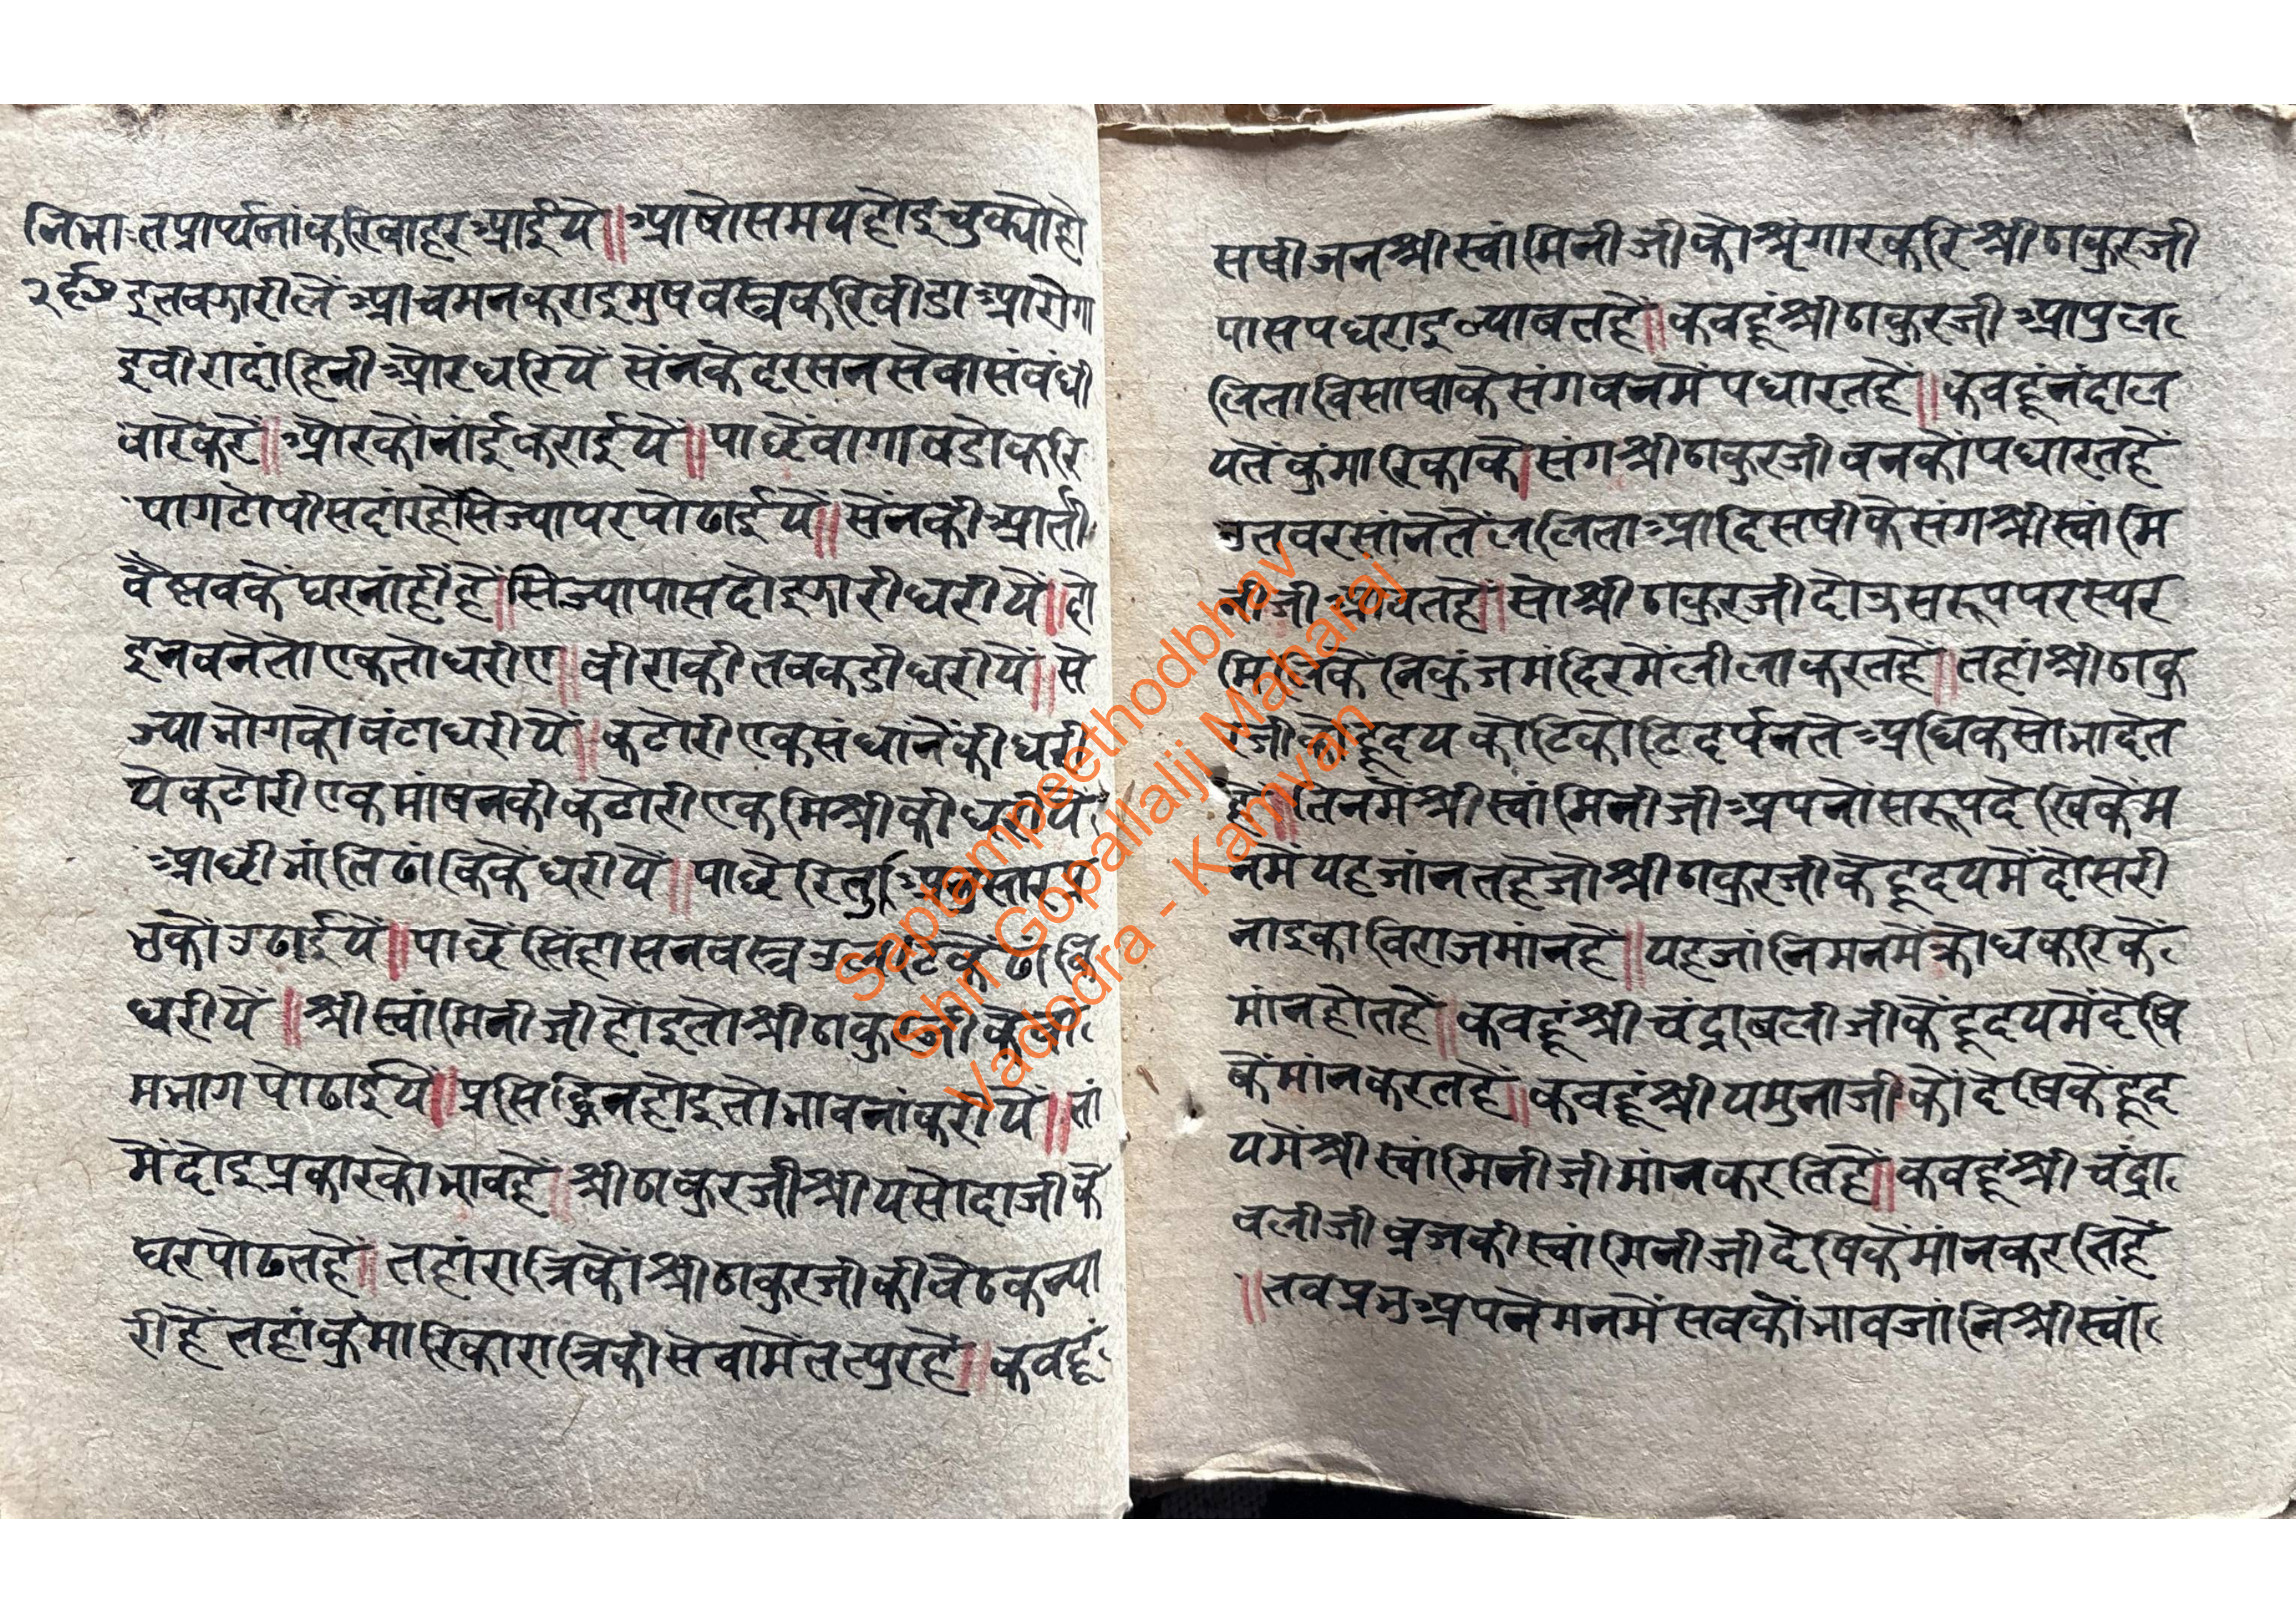 नित्रा तप्रार्थनांकरिवाहरआईये॥आषोसमयहोइचुक्योहो
२६७ इतवझारीलेंआचमनकराइमुषवस्त्रकरिवीडाआरोगा
इवीरादांहिनीओरधरियें सेंनकेदरसनसेवासंवंधी
वारेकरें॥ओरकोंनांईकराईयें॥पाछेंवागावडोकरि
पागटोपीसदांरहेंसिज्यापरपोढाईये॥सेंनकीआर्ती
वैष्णवकेंघरनांहींहें॥सिज्यापासदोइझारीधरीयें॥हो
इनवनेतोएकतोधरीए॥वीराकीतवकडीधरीयें॥से
ज्याभोगकोवंटाधरीयें॥कटोरीएकसंधांनेंकीधरी
येकटोरीएकमांषनकीकटोरीएकमिश्रीकीधरीयें
आछीभांतिढांकिकेंधरीयें॥पाछेंरितुअनुसार
कोंउढाईयें॥पाछेंसिंहासनवस्त्रउलटिकेंढांकि
धरीयें॥श्रीस्वांमिनीजीहोंइतोश्रीठाकुरजीकेवां
मभागपोढाईयें॥प्रसिद्धिनहोइतोभावनांकरीयें॥तां
मेंदोइप्रकारकोभावहें॥श्रीठाकुरजीश्रीयसोदाजीके
घरपोढतहें॥तहांरात्रिकोंश्रीठाकुरजीकीवैठकन्या
रीहेंतहांकुंमारिकारात्रिकीसेवामेंतत्पुरहें॥कवहूं
सषीजनश्रीस्वांमिनीजीकोश्रृंगारकरिश्रीठाकुरजी
पासपधराइल्यावतहें॥कवहूंश्रीठाकुरजीआपुल
लिताविसाषाकेसंगवनमेंपधारतहें॥कवहूंनंदाल
यतेंकुंमारिकाके।संगश्रीठाकुरजीवनकोंपधारतहें
उतवरसांनेतेंललिताआदिसषीकेसंगश्रीस्वांमि
नीजीआंवतहें॥सोश्रीठाकुरजीदोऊसरूपपरस्पर
मिलिकेंनिकुंजमंदिरमेंलीलाकरतहें॥तहांश्रीठाकु
रजीकोहृदयकोटिकोटिदर्पनतेअधिकसोभादेत
हें॥तिनमेंश्रीस्वांमिनीजीअपनोंसरूपदेखिकेंम
नमेंयहजांनतहेजोश्रीठाकुरजीकेहृदयमेंदोसरी
नाइकाविराजमांनहें॥यहजांनिमनमेंक्रोधकरिकें
मांनहोतहें॥कवहूंश्रीचंद्रावलीजीकेंहृदयमेंदेषि
केंमांनकरतहे॥कवहूंश्रीयमुनाजीकोंदेषिकेंहृद
यमेंश्रीस्वांमिनीजीमांनकरतिहें॥कवहूंश्रीचंद्रा
वलीजीव्रजकीस्वांमिनीजीदेषिकेंमांनकरतिहें
॥तवप्रभुअपनेमनमेंसवकोंभावजांनिश्रीस्वां
Saptampeethodbhav
Shri Gopallalji Maharaj
Vadodra - Kamvan